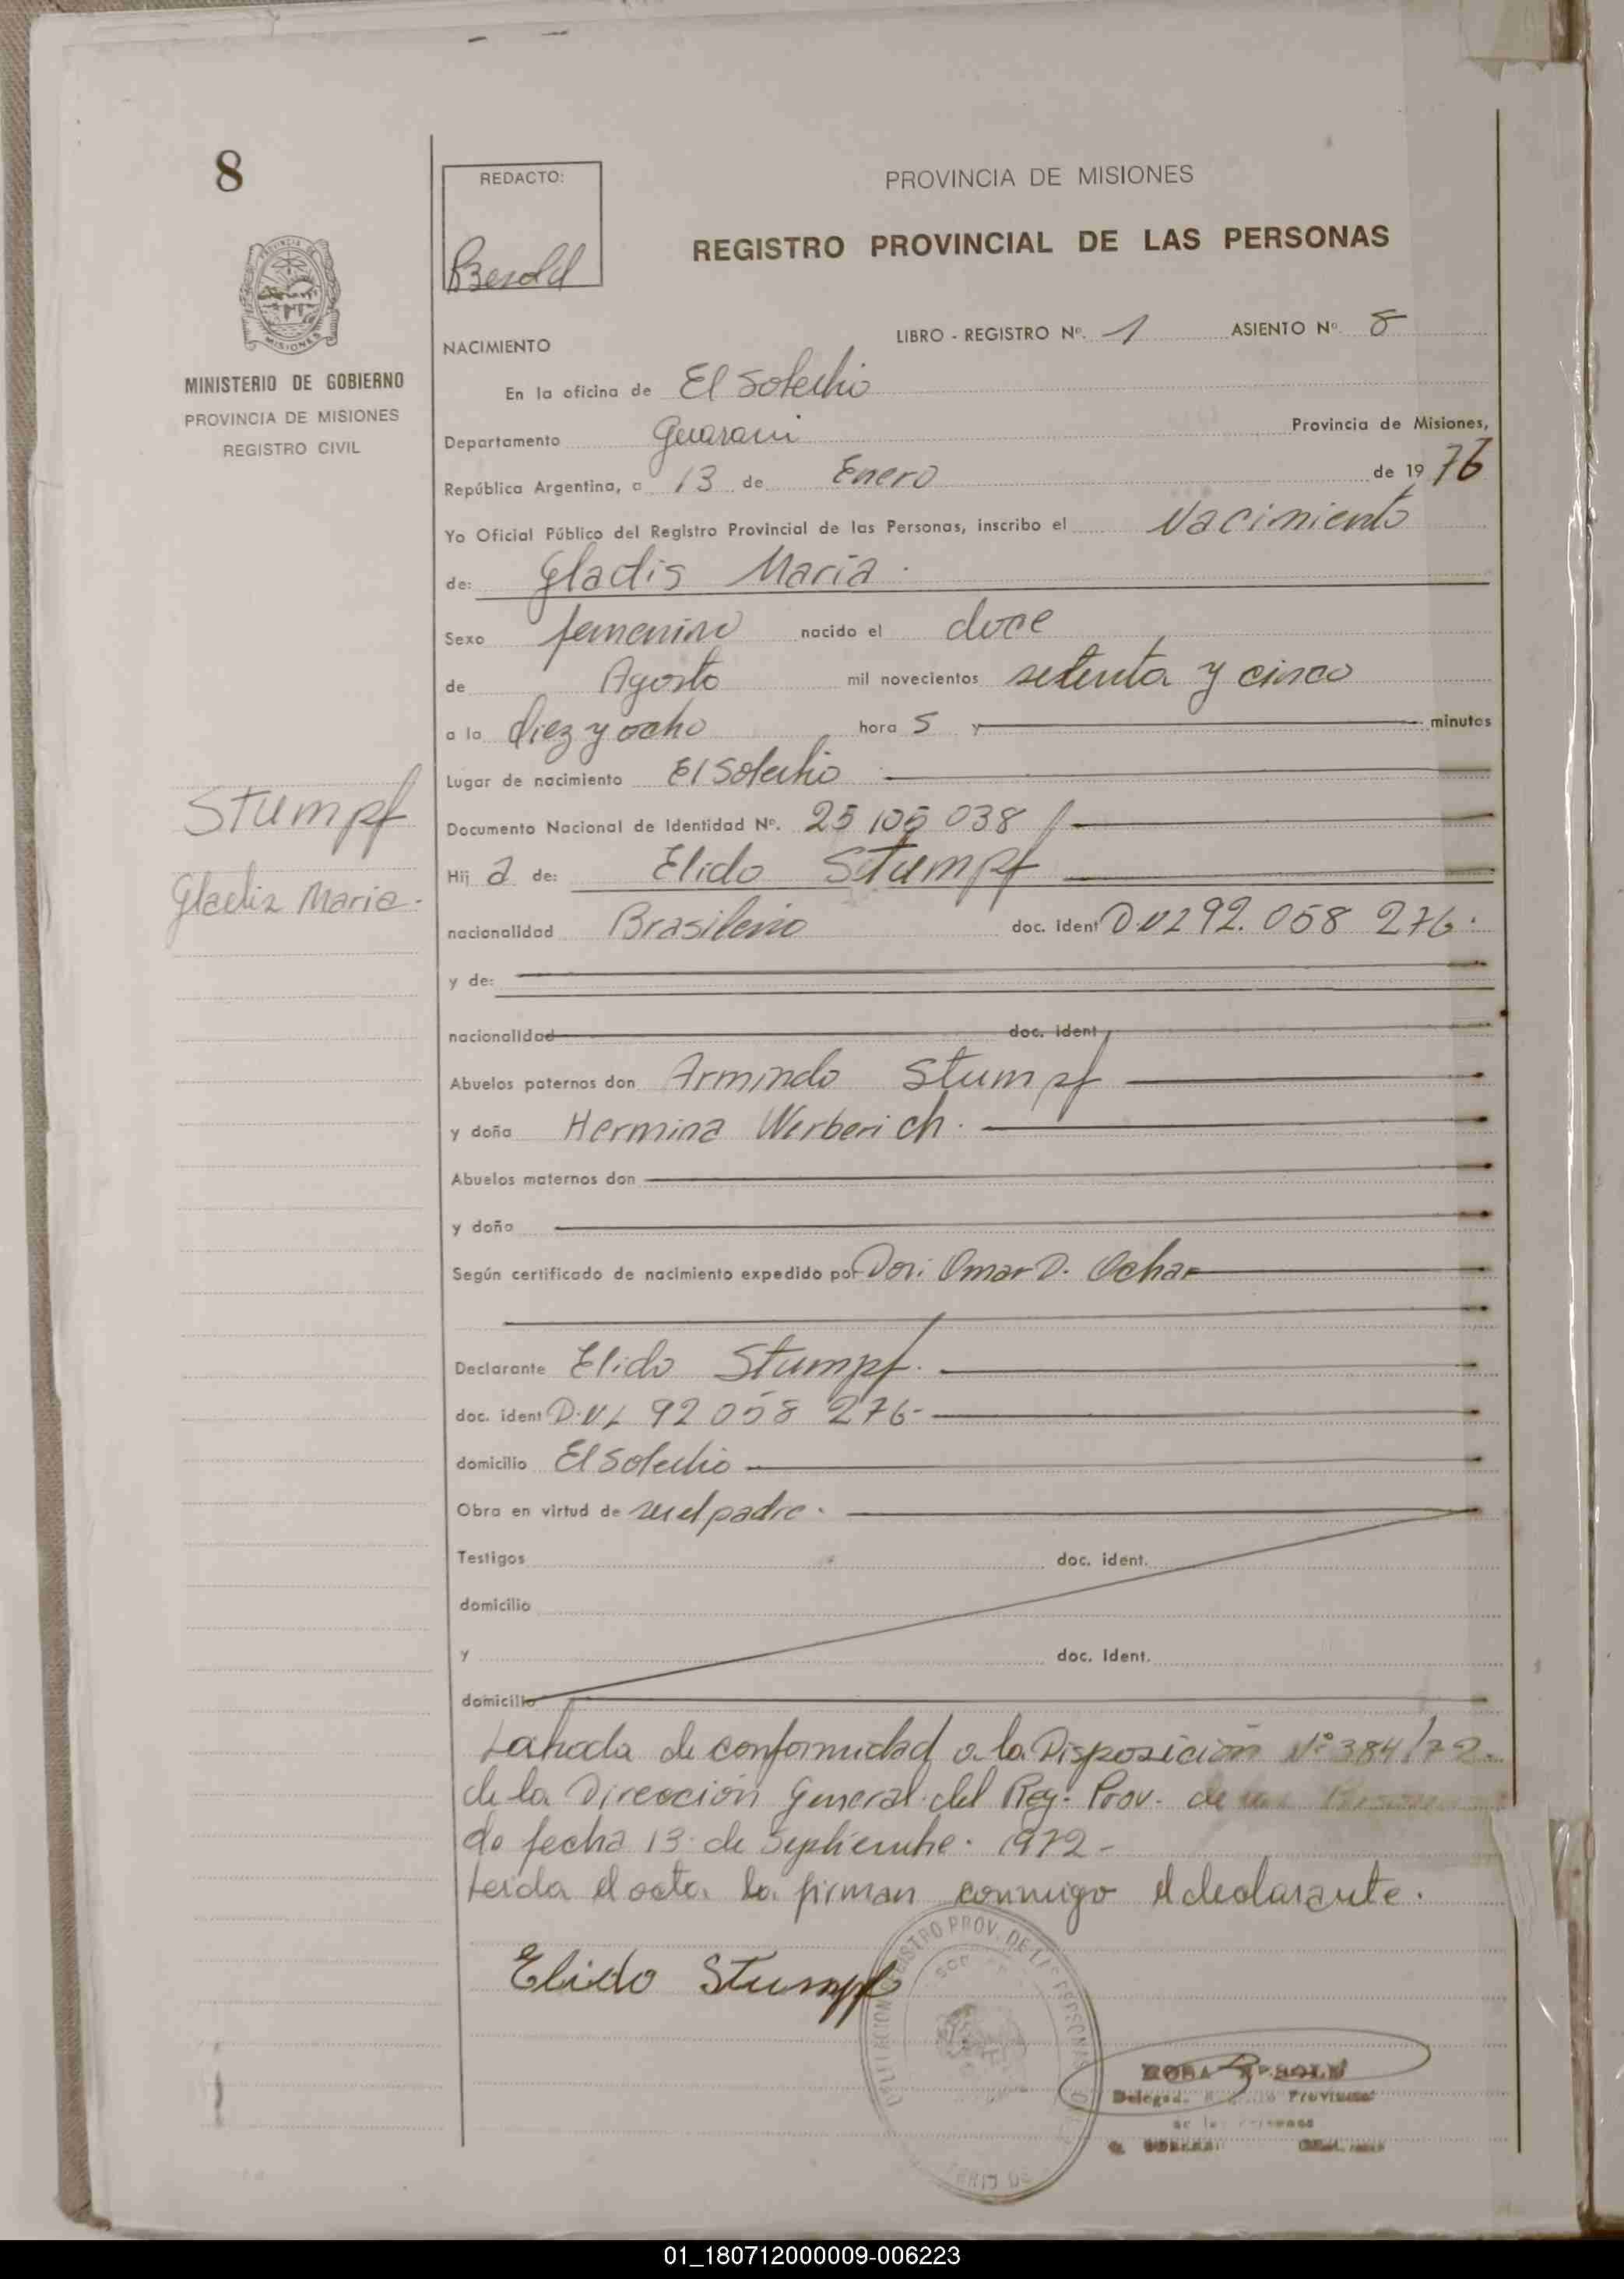 8
REDACTO:
Besold
PROVINCIA DE MISIONES
REGISTRO PROVINCIAL DE LAS PERSONAS
MINISTERIO DE GOBIERNO
PROVINCIA DE MISIONES
REGISTRO CIVIL
NACIMIENTO
LIBRO - REGISTRO Nº. 1 ASIENTO Nº 8
En la oficina de El Soberbio
Departamento Guarani Provincia de Misiones,
República Argentina, a 13 de Enero de 1976
Yo Oficial Público del Registro Provincial de las Personas, inscribo el Nacimiento
de: Gladis Maria.
Sexo femenino nacido el doce
de Agosto mil novecientos setenta y cinco
a la diez y ocho hora s y minutos
Lugar de nacimiento El Soberbio
Stumpf
Gladis Maria.
Documento Nacional de Identidad Nº. 25 105 038
Hij a de: Elido Stumpf
nacionalidad Brasileño doc. ident D.NI 92.058 276.
y de:
nacionalidad doc. ident
Abuelos paternos don Armindo Stumpf
y doña Hermina Werberich.
Abuelos maternos don
y doña
Según certificado de nacimiento expedido por Omar D. Ochar
Declarante Elido Stumpf.
doc. ident D.NI 92 058 276-
domicilio El Soberbio
Obra en virtud de ser el padre.
Testigos doc. ident.
domicilio
y doc. ident.
domicilio
Labrada de conformidad a la Disposición Nº 384/72.
de la Dirección General del Reg. Prov. de
de fecha 13 de Septiembre. 1972-
Leida el acta la firman conmigo el declarante.
Elido Stumpf
REGISTRO PROV. DE LAS PERSONAS
01_180712000009-006223